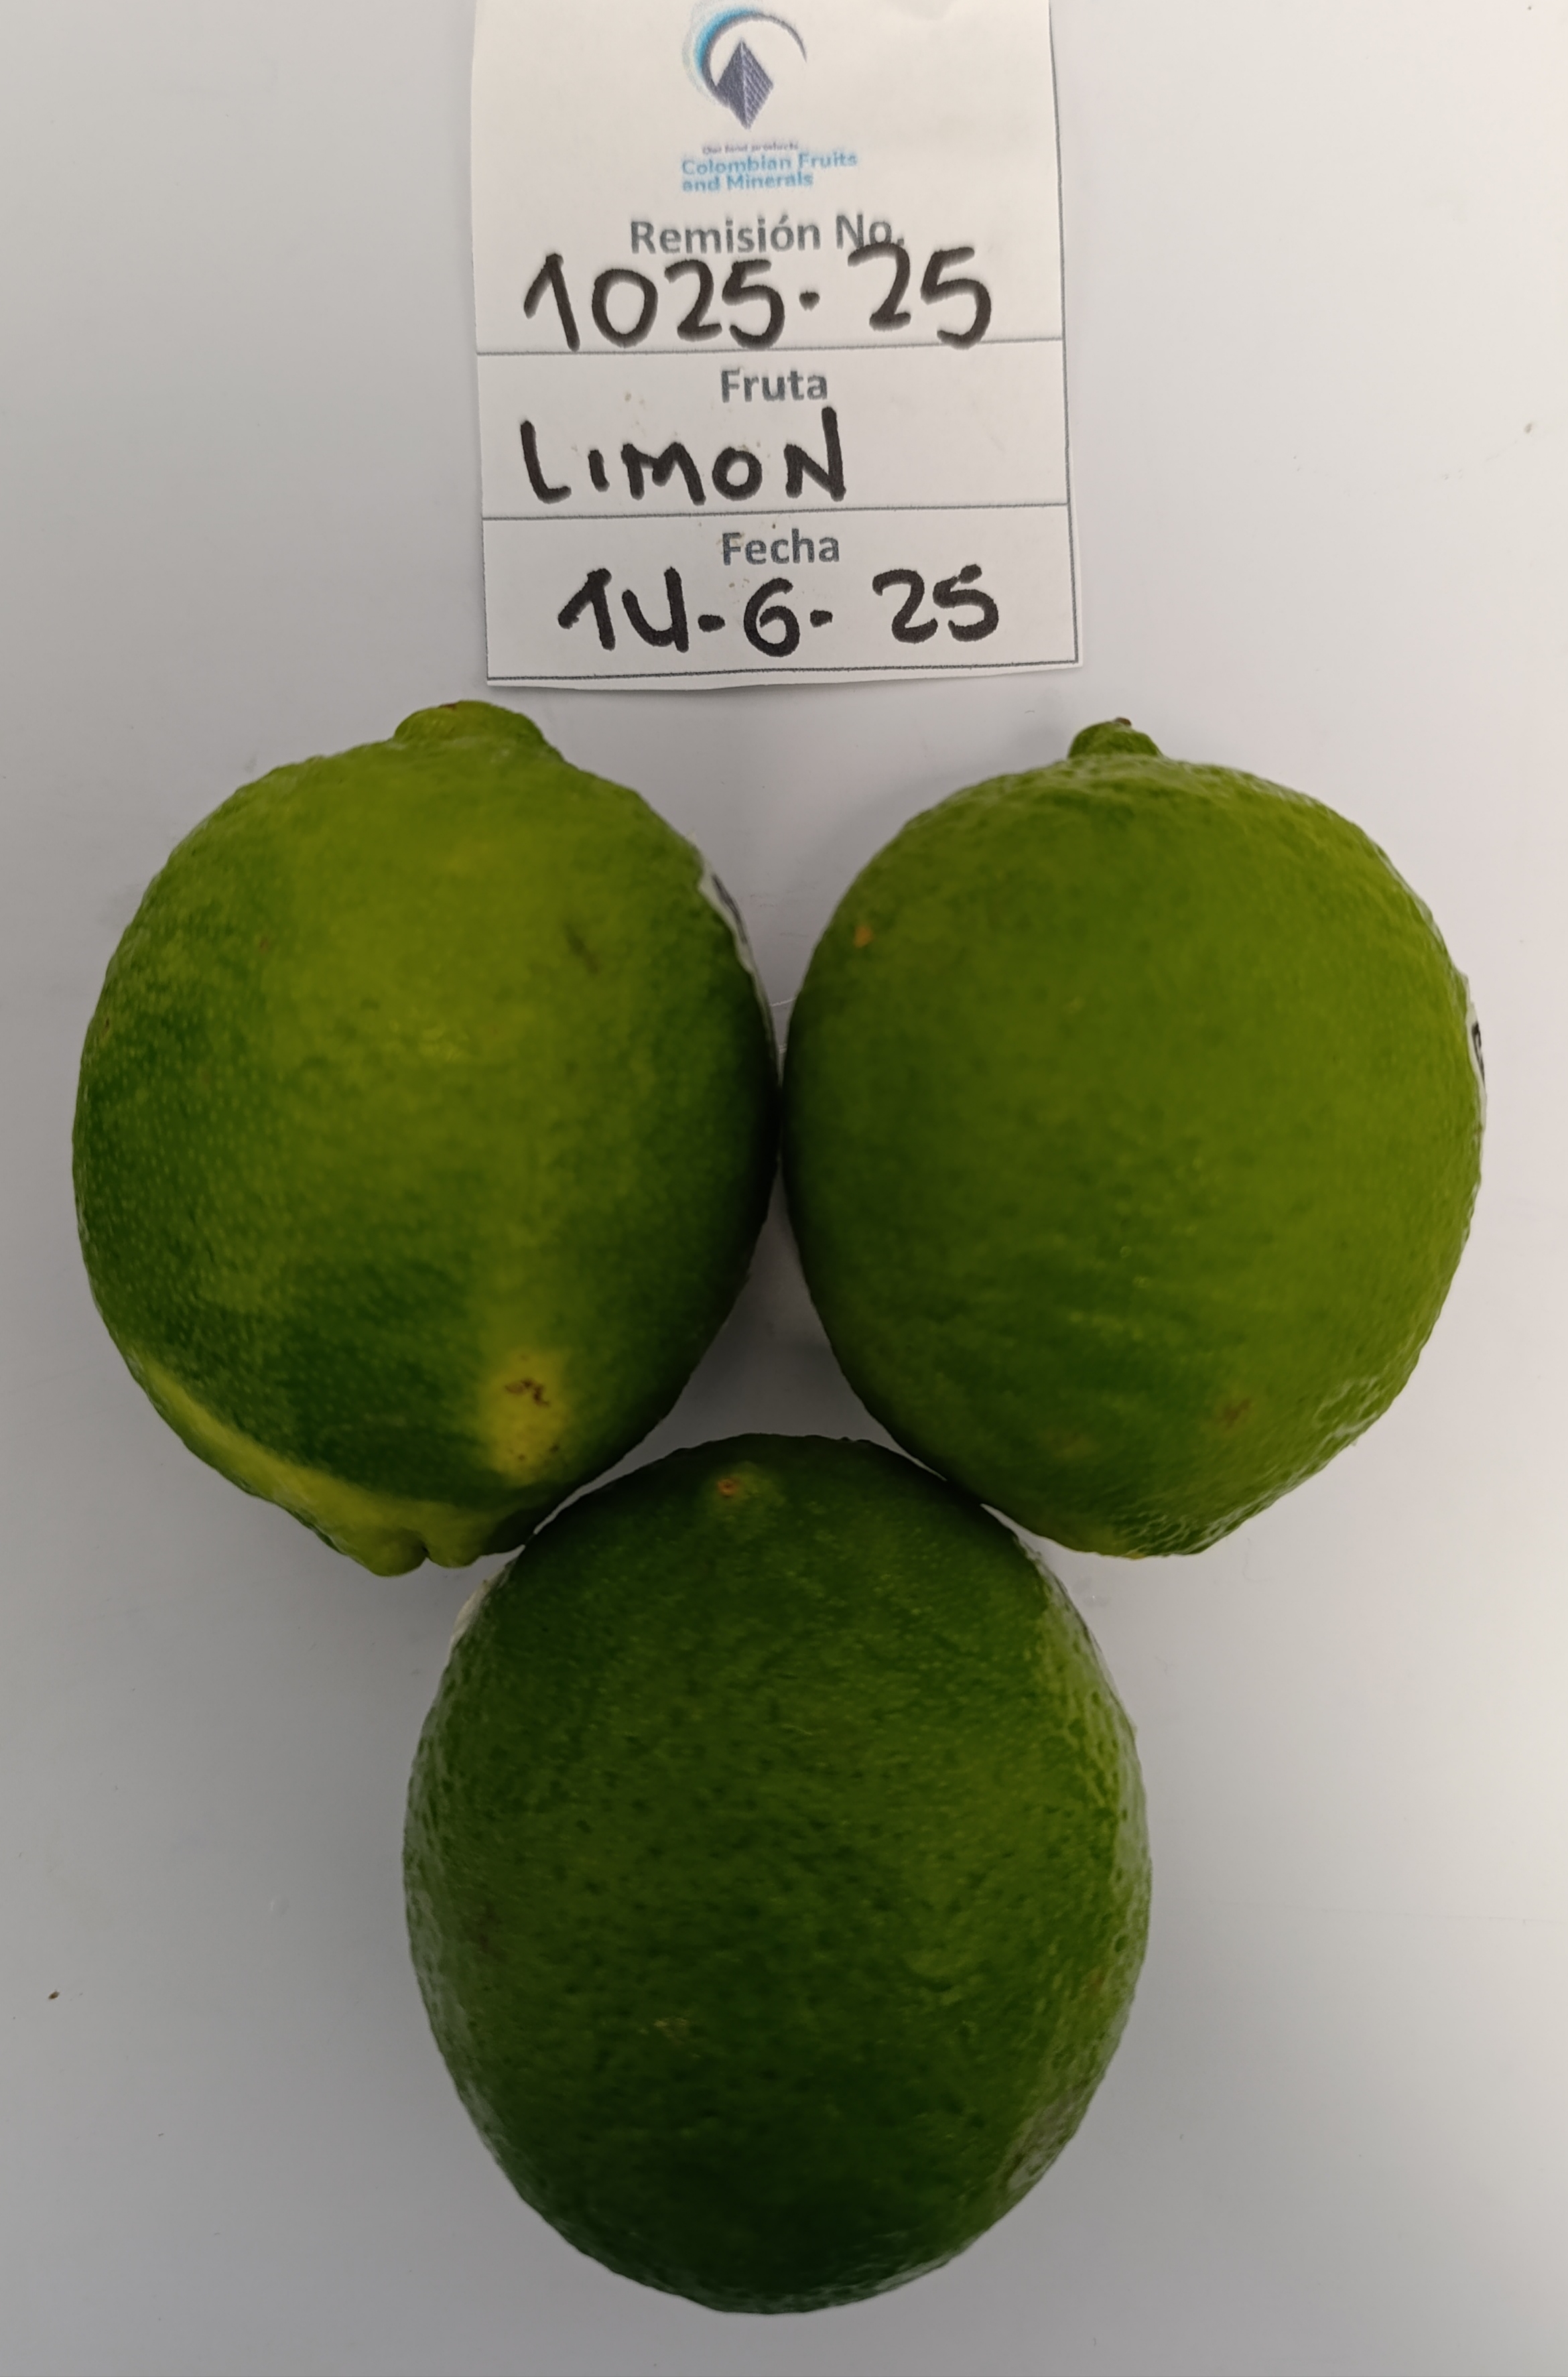 Our food products...
Colombian Fruits
and Minerals
Remisión No.
1025-25
Fruta
LIMON
Fecha
14-6-25